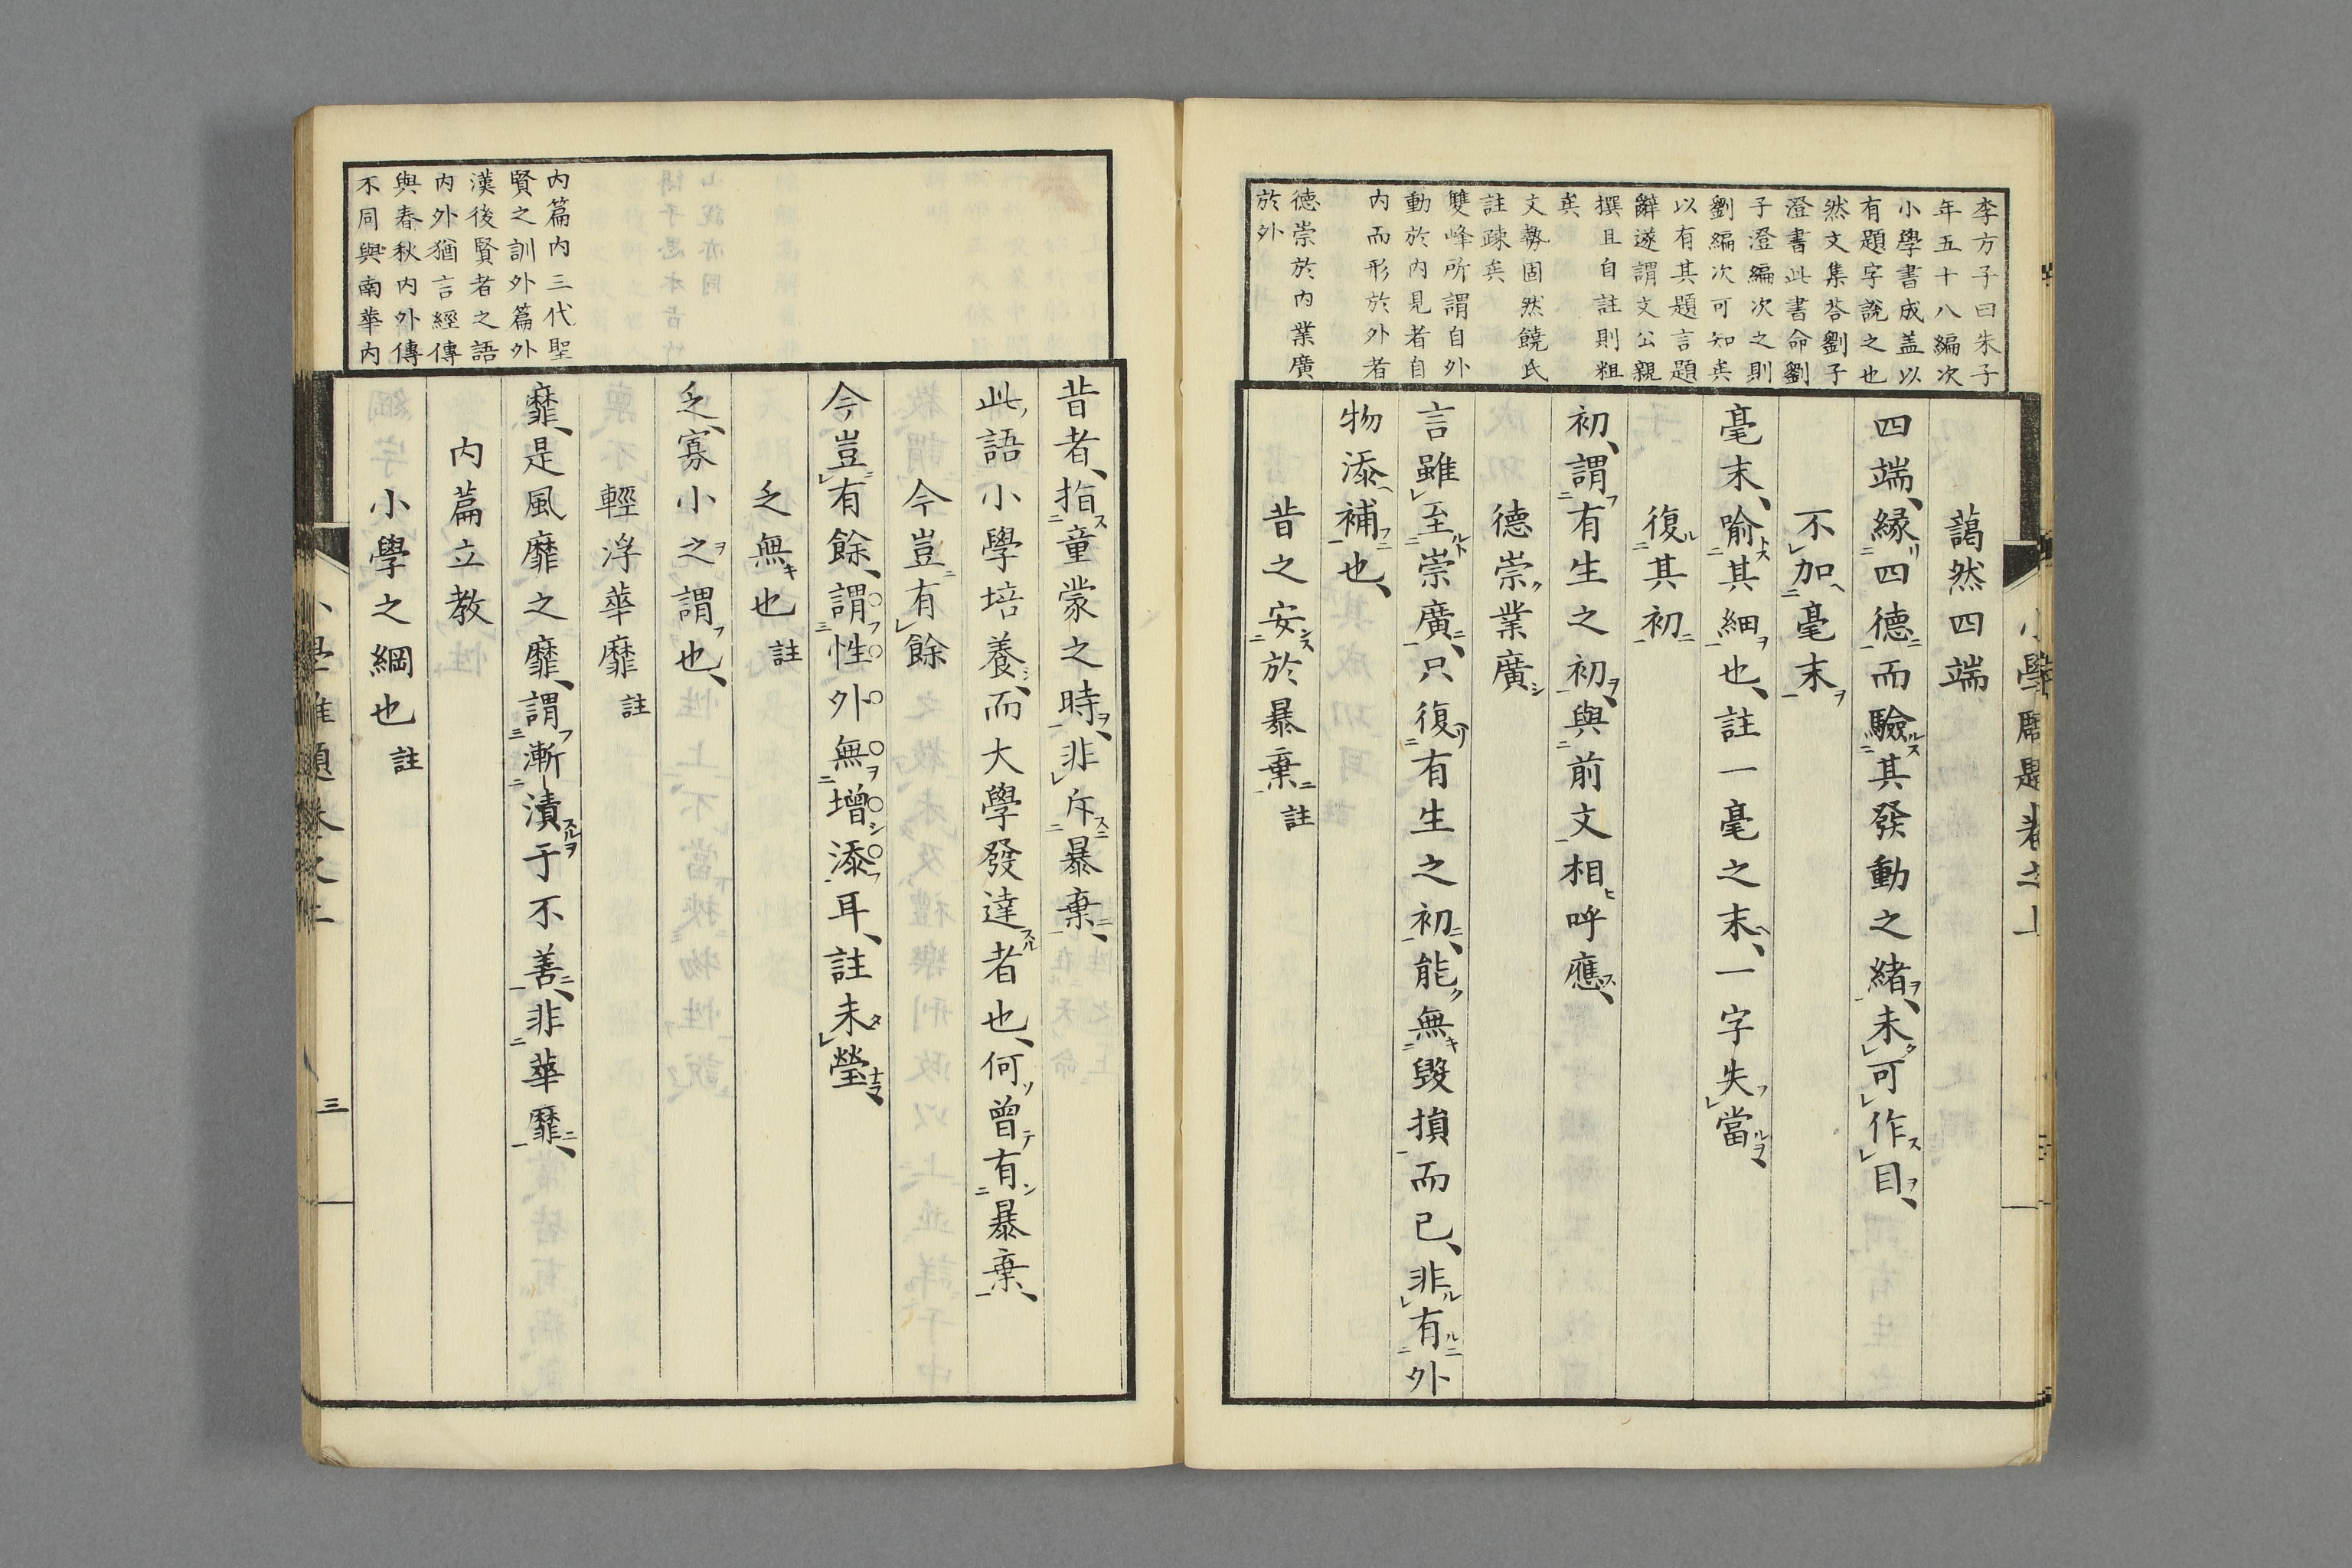 李方子曰朱子
年五十八編次
小學書成盖以
有題字說之也
然文集荅劉子
澄書此書命劉
子澄編次之則
劉編次可知矣
以有其題言題
辭遂謂文公親
撰且自註則粗
矣
文勢固然饒氏
註疎矣
雙峰所謂自外
動於内見者自
内而形於外者
德崇於内業廣
於外
藹然四端
四端、緣四德而驗其發動之緒、未可作目、
不加毫末
毫末、喻其細也、註一毫之末、一字失當、
復其初
初、謂有生之初、與前文相呼應、
德崇業廣
言雖至崇廣、只復有生之初、能無毀損而已、非有外
物添補也、
昔之安於暴棄註
内篇内三代聖
賢之訓外篇外
漢後賢者之語
内外猶言經傳
與春秋内外傳
不同與南華内
昔者、指童蒙之時、非斥暴棄、
此語小學培養、而大學發達者也、何曾有暴棄、
今豈有餘
今豈有餘、謂性外無增添耳、註未瑩、
乏無也註
乏、寡小之謂也、
輕浮華靡註
靡、是風靡之靡、謂漸漬于不善、非華靡、
内篇立教
小學之綱也註
三